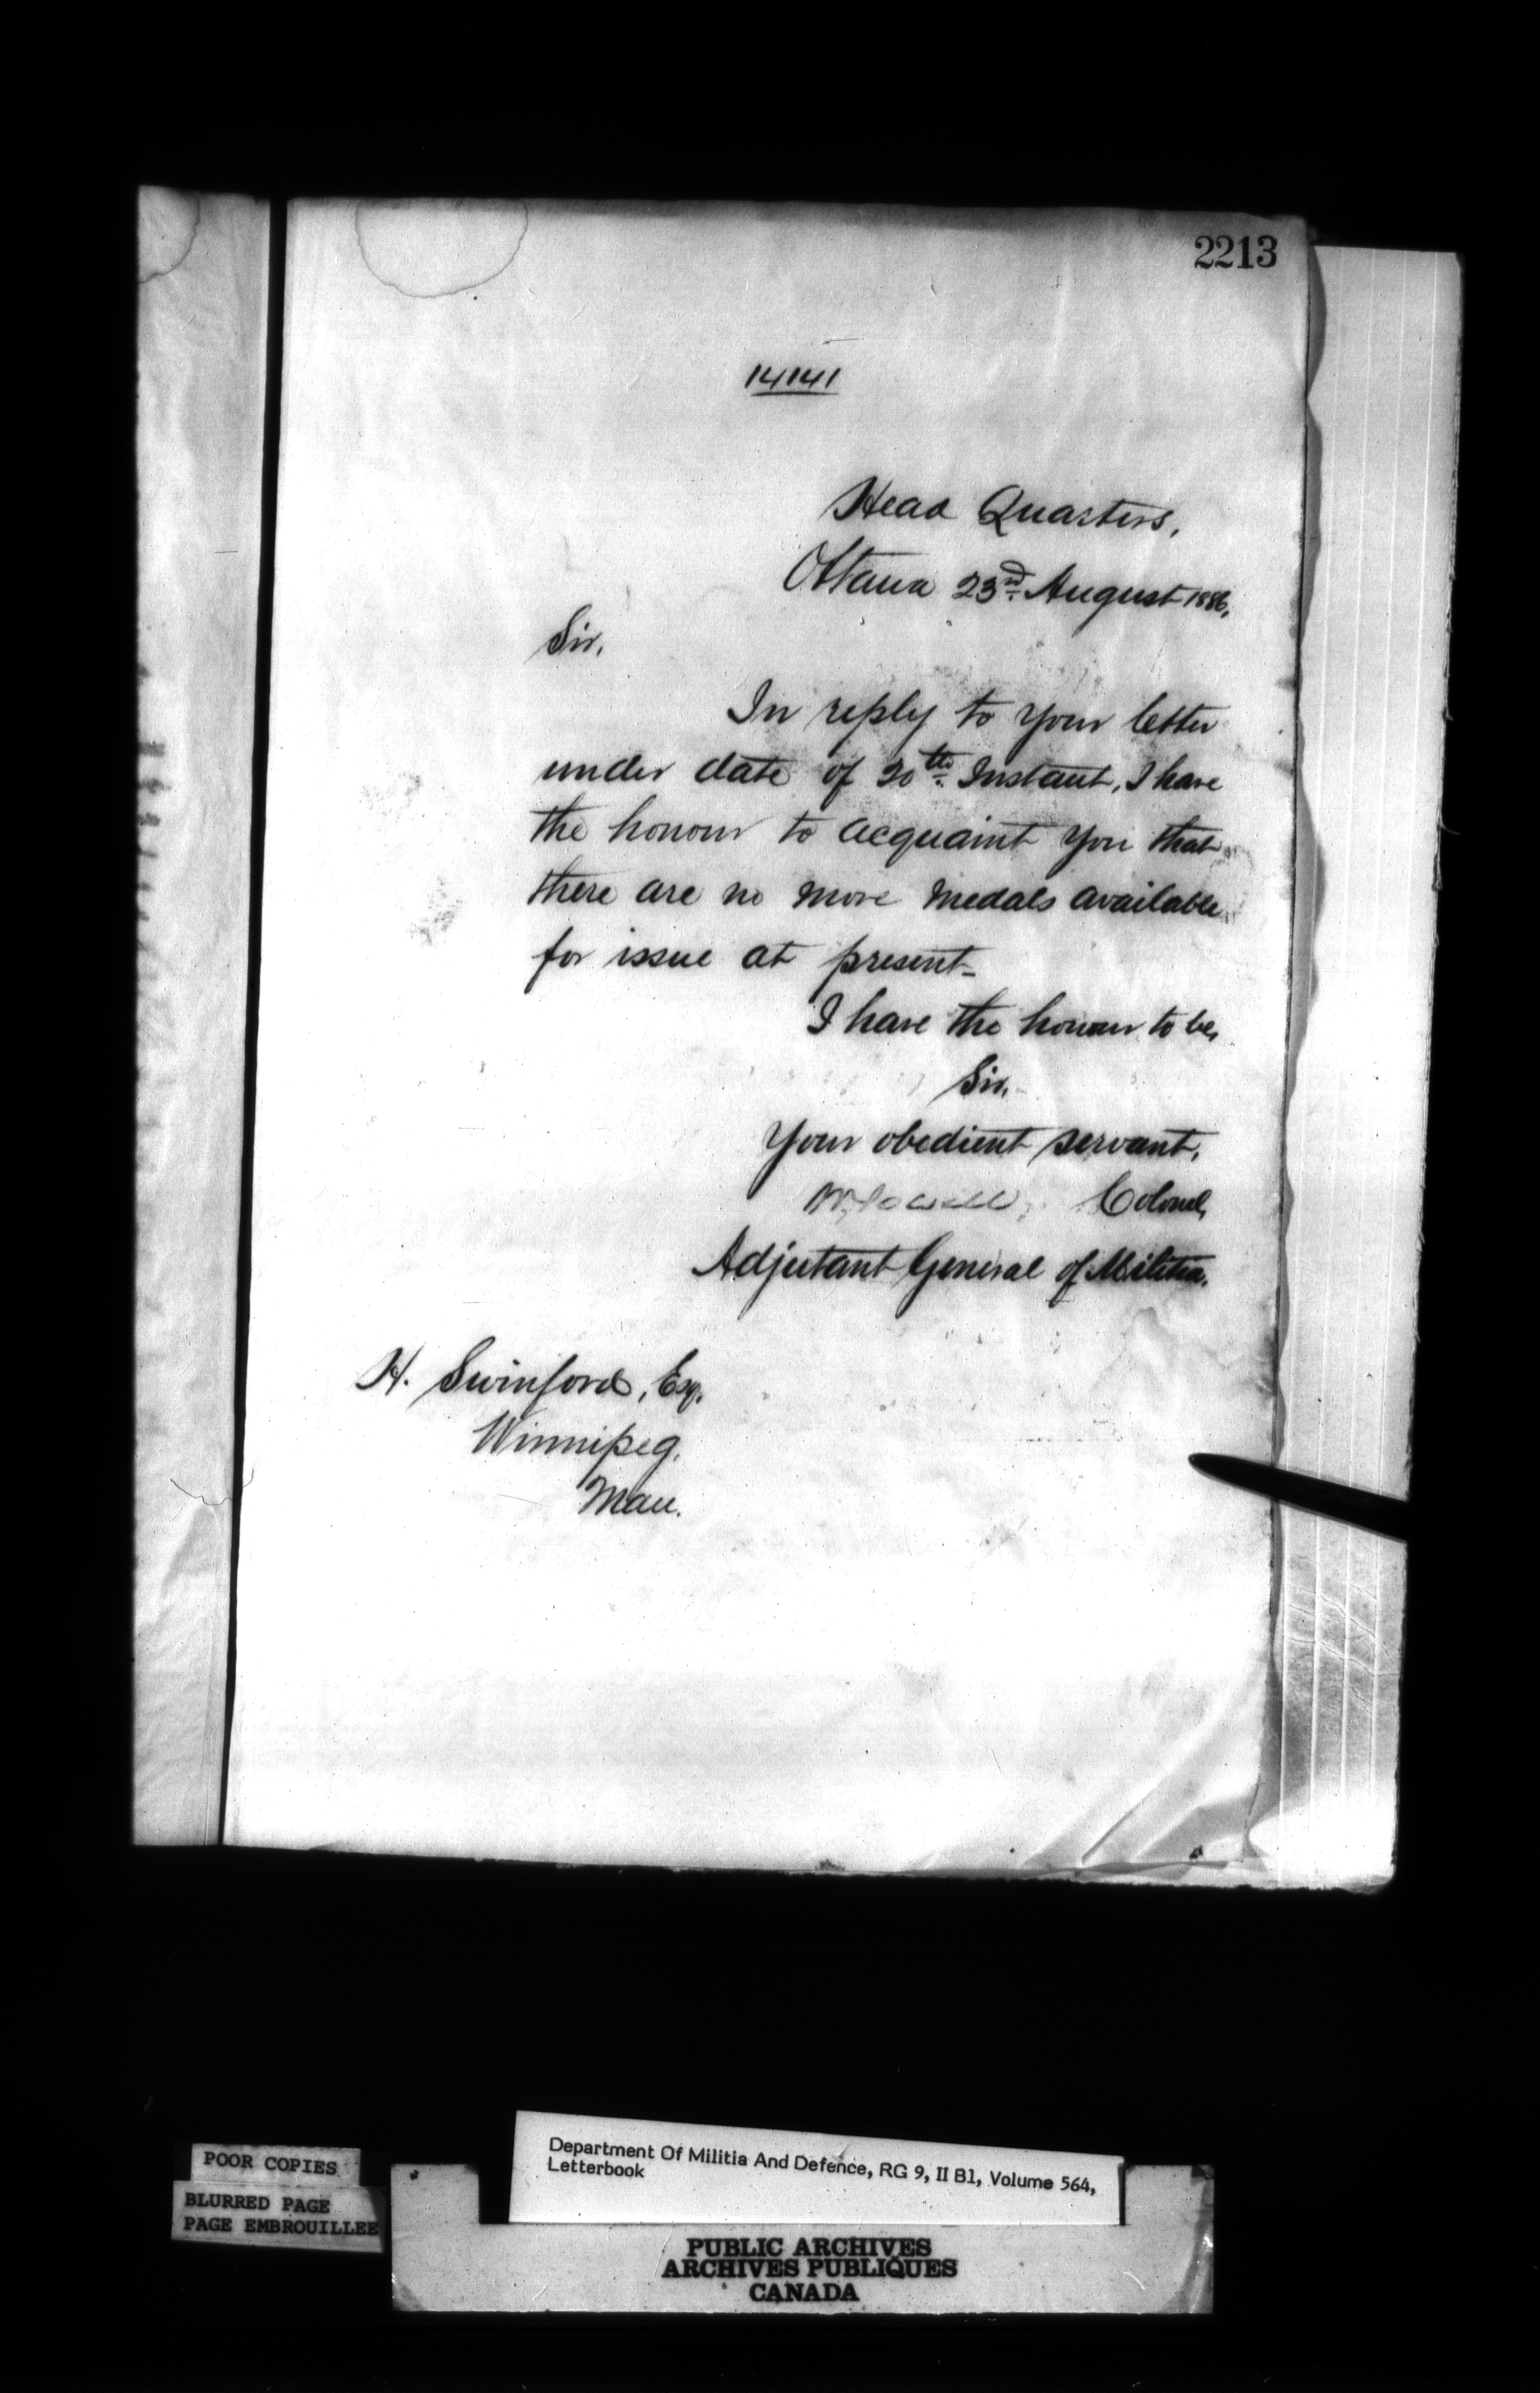 2213
14141
Head Quarters,
Ottawa 23rd August 1886,
Sir,
In reply to your letter
under date of 20th Instant, I have
the honour to acquaint you that
there are no more medals available
for issue at present-
I have the honour to be,
Sir,
Your obedient servant,
W. Powell, Colonel,
Adjutant General of Militia.
H. Swinford, Esq.
Winnipeg,
Man.
POOR COPIES
BLURRED PAGE
PAGE EMBROUILLEE
Department Of Militia And Defence, RG 9, II B1, Volume 564,
Letterbook
PUBLIC ARCHIVES
ARCHIVES PUBLIQUES
CANADA